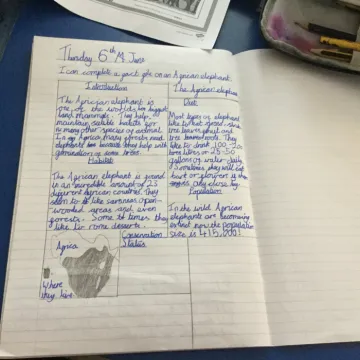 Thursday 6th June
I can complete a fact file on an African elephant.
Introduction
The African elephant is
one of the worlds biggest
land mammals. They help
maintain suitable habitats for
many other species of animal
in Africa. Many forests need
elephants because they help with
germination of some trees.
Habitat
The African elephant is found
in an incredible amount of 25
different African countries. They
seem to like savannas, open-
wooded areas and even
forests. Some times they
like to rome deserts.
Africa
Where
they live.
Conservation
Status
The African elephant
Diet
Most types of elephant
like to eat grass and
tree leaves, fruit and
tree branches. They
like to drink 100-
litres or 25-50
gallons of water daily.
Sometimes they will eat
bark or flowers
Population
In the wild African
elephants are becoming
extinct now the population
size is 415,000!